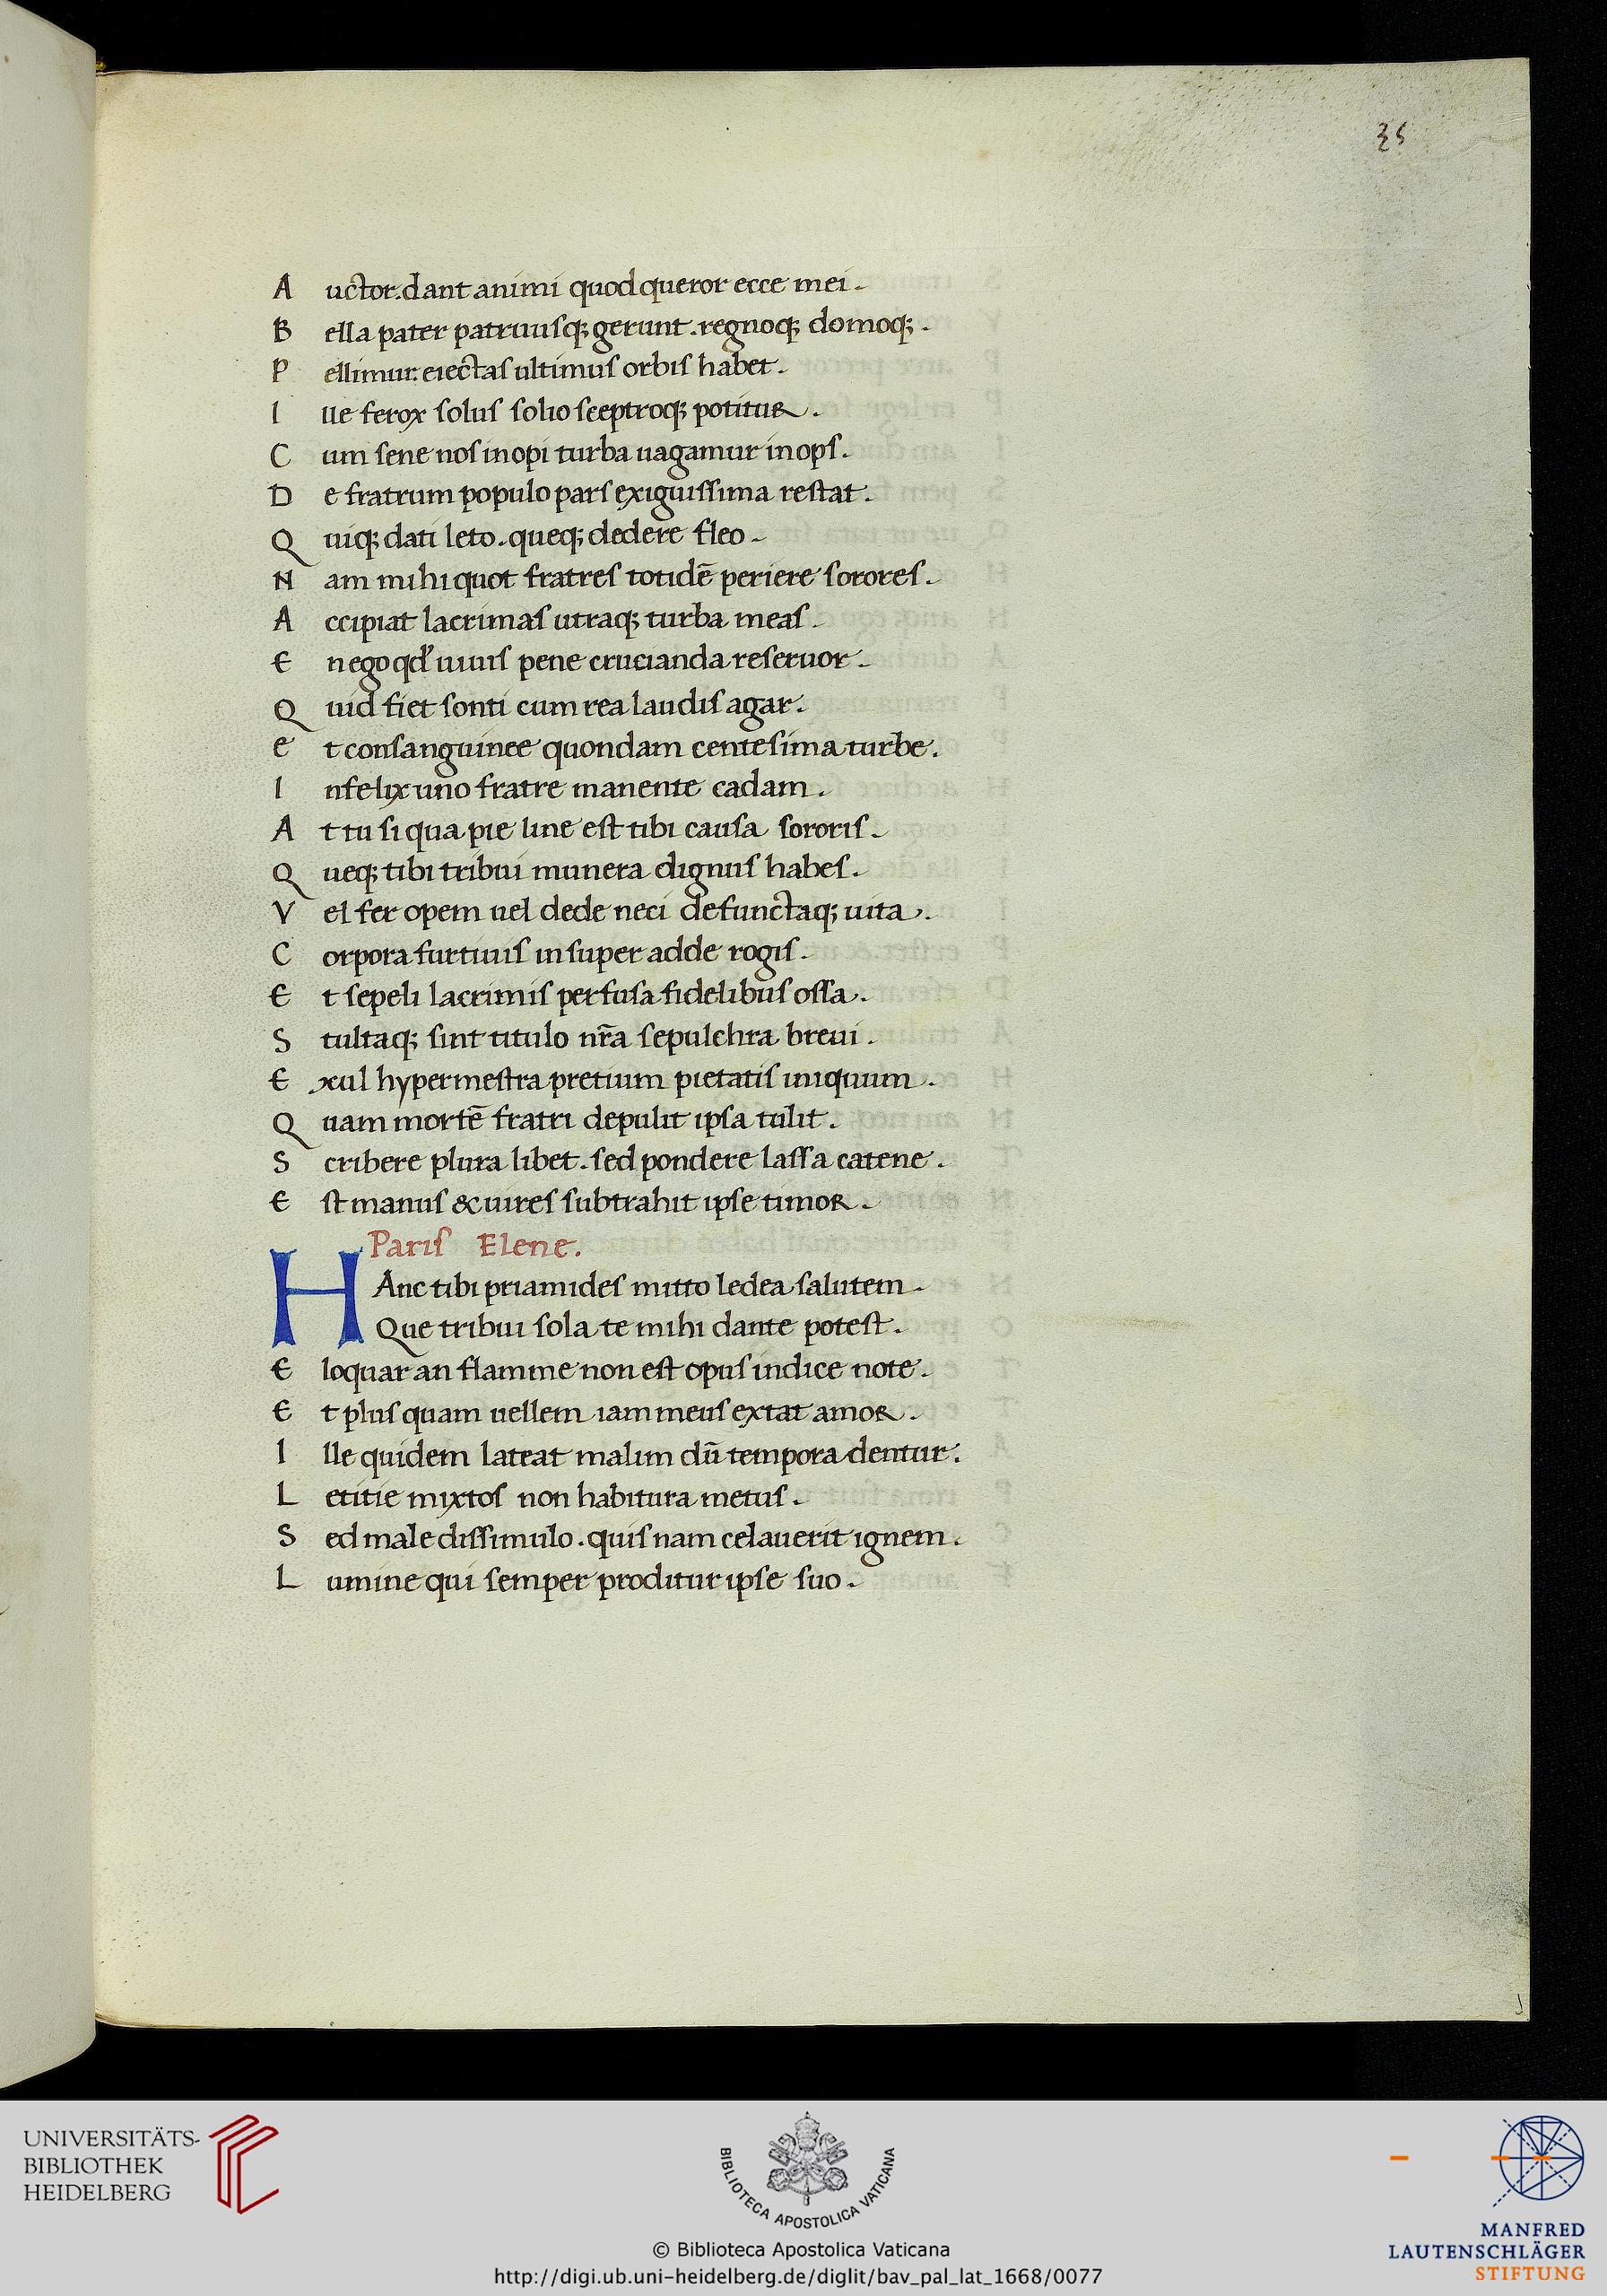 35
A uctor. dant animi quod queror ecce mei.
B ella pater patruusq; gerunt. regnoq; domoq;.
P ellimur. eiectas ultimus orbis habet.
I lle ferox solus solio sceptroq; potitur.
C um sene nos inopi turba uagamur inops.
D e fratrum populo pars exiguissima restat.
Q uiq; dati leto. queq; dedere fleo.
N am mihi quot fratres totidē periere sorores.
A ccipiat lacrimas utraq; turba meas.
E n ego qđ uiuis pene crucianda reseruor.
Q uid fiet sonti cum rea laudis agar.
e t consanguinee quondam centesima turbe.
I nfelix uno fratre manente cadam.
A t tu si qua pie line est tibi causa sororis.
Q ueq; tibi tribui munera dignus habes.
V el fer opem uel dede neci defunctaq; uita.
C orpora furtiuis insuper adde rogis.
E t sepeli lacrimis perfusa fidelibus ossa.
S tultaq; sint titulo nr̄a sepulchra breui.
E xul hypermestra pretium pietatis iniquum.
Q uam mortē fratri depulit ipsa tulit.
S cribere plura libet. sed pondere lassa catene.
E st manus & uires subtrahit ipse timor.
Paris Elene.
HAnc tibi priamides mitto ledea salutem.
Que tribui sola te mihi dante potest.
E loquar an flamme non est opus indice note.
E t plus quam uellem iam meus extat amor.
I lle quidem lateat malim dū tempora dentur.
L etitie mixtos non habitura metus.
S ed male dissimulo. quis nam celauerit ignem.
L umine qui semper proditur ipse suo.
UNIVERSITÄTS-
BIBLIOTHEK
HEIDELBERG
BIBLIOTECA APOSTOLICA VATICANA
© Biblioteca Apostolica Vaticana
http://digi.ub.uni-heidelberg.de/diglit/bav_pal_lat_1668/0077
MANFRED
LAUTENSCHLÄGER
STIFTUNG